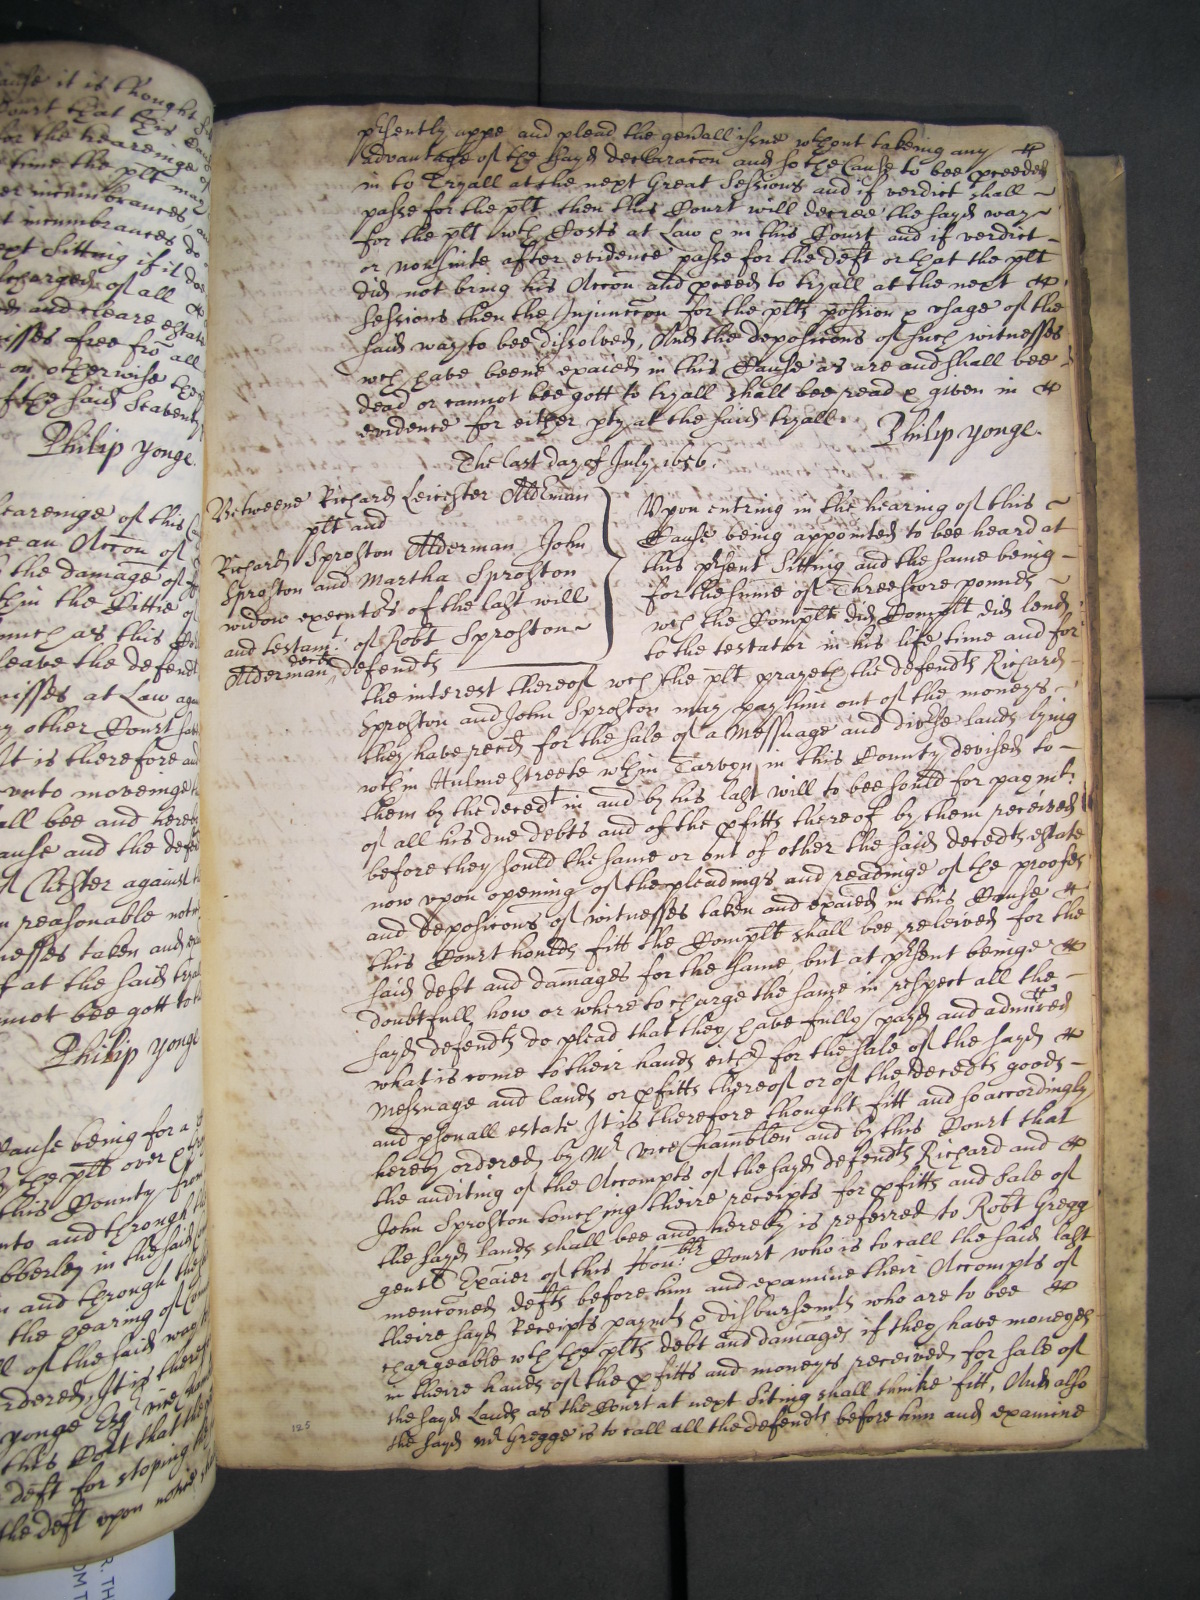 ause it is thought
Court that this Cau
for the heareinge of
time the plt may
er incumbrances, an
t incumbrances do
ept Sitting if it doe
scharged of all
d and cleare estate
isses free fro all
on otherwise they
f the said Seaventy
Philip Yonge.
heareinge of this
an Accon of
the damage of
thin the Cittie of
much as this
leave the defend
misses at Law aga
y other Court
It is therefore
vnto moveinge
all bee and hereby
ause and the defe
of Chester against
n reasonable not
nesses taken and
f at the said trya
nnot bee gott to
Philip Yonge
Cause being for a
the plts over
this County from
nto and through
bberley in the said
n and through the
the hearing of
ll of the said way
rdered, It is there
Yonge Esqr vice
this Court that the
deft for stoping
the deft upon notice
psently appe and plead the genall issue wthout takeing any
advantage of the sayd declaracon and so the Cause to bee pceeded
in to Tryall at the next Great Sessions and if verdict shall
passe for the plt then this Court will decree the sayd way
for the plt wth Costs at Law & in this Court and if verdict
or nonsuite after evidence passe for the deft or that the plt
did not bring his Accon and pceed to tryall at the next
Sessions then the Injunccon for the plts possion & vsage of the
said way to bee dissolved, And the deposicons of such witnesses
wch have beene exaied in this Cause as are and shall bee
dead or cannot bee gott to tryall shall bee read & given in
evidence for either pty at the said tryall. Philip Yonge.
The last day of July 1656.
Betweene Richard Leicester Alderman
plt and
Richard Sproston Alderman John
Sproston and Martha Sproston
widow executors of the last will
and testamt. of Robt Sproston
Alderman decd defendts
Vpon entring in the hearing of this
Cause being appointed to bee heard at
this psent Sitting and the same being
for the sume of Threescore pounds
wch the Complt did Complt did lend
to the testator in his life time and for
the interest thereof wch the plt prayeth the defendts Richard
Sproston and John Sproston may pay him out of the moneys
they have recd for the sale of a Messuage and diverse lands lying
wthin Hulme streete wthin Tarvyn in this County devised to
them by the decedt in and by his last will to bee sould for paymt.
of all his due debts and of the pfitts thereof by them received
before they sould the same or out of other the said decedts estate
now vpon opening of the pleadings and readinge of the proofes
and deposicons of witnesses taken and exaied in this Cause
this Court houlds fitt the Complt shall bee releived for the
said debt and damages for the same but at psent beinge
doubtfull how or where to charge the same in respect all the
sayd defendts do plead that they have fully payd and admitted
what is come to their hands either for the sale of the sayd
Messuage and lands or pfitts thereof or of the decedts goods
and psonall estate It is therefore thought fitt and so accordingly
hereby ordered by Mr. vice Chamblen and by this Court that
the auditing of the Accompts of the sayd defendts Richard and
John Sproston touching theire receipts for pfitts and sale of
the sayd lands shall bee and hereby is referred to Robt Gregg
gent Exaier of this Honble Court who is to call the said last
menconed defts before him and examine their Accompts of
theire sayd Receipts paymts & disbursemts who are to bee
chargeable wth the plts debt and damages if they have moneyes
in theire hands of the pfitts and moneys received for sale of
the sayd Lands as the Court at next Siting shall thinke fitt, And also
the sayd Mr Gregge is to call all the defendts before him and examine
125